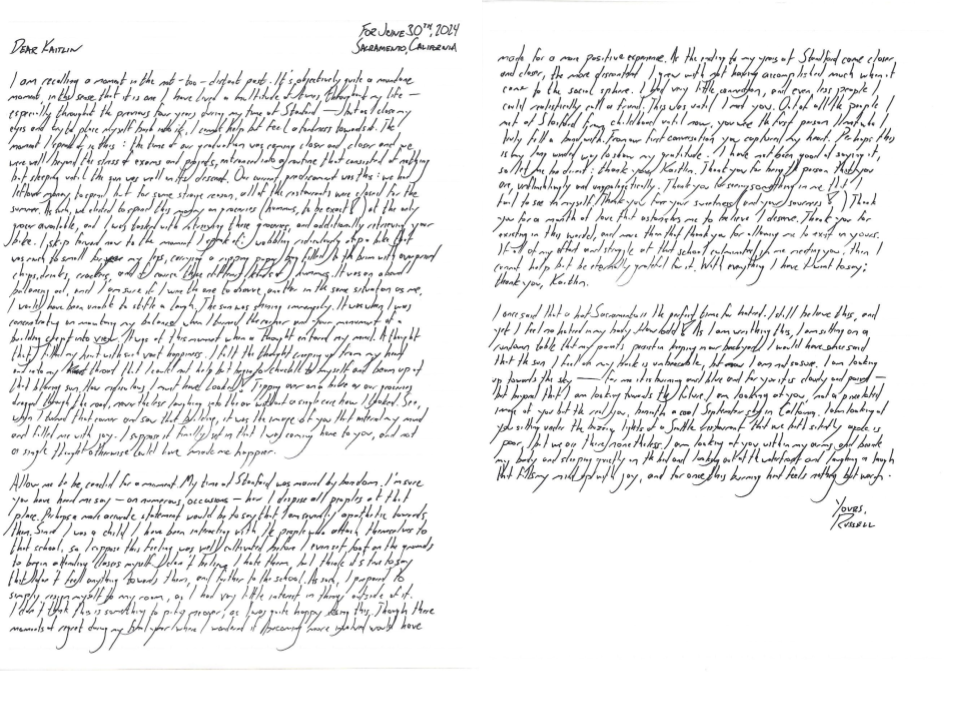 For June 30th, 2024
Sacramento, California
Dear Kaitlin
I am recalling a moment in the not-too-distant past. It's objectively quite a mundane
moment, in the sense that it is one I have lived a multitude of times throughout my life —
especially throughout the previous four years during my time at Stanford — but as I close my
eyes and try to place myself back into it, I cannot help but feel a fondness towards it. The
moment I speak of is this: the time of our graduation was coming closer and closer and we
were well beyond the stress of exams and projects, entranced into a routine that consisted of nothing
but sleeping until the sun was well into its descent. Our current predicament was this: we had
leftover money to spend, but for some strange reason, all of the restaurants were closed for the
summer. As such, we decided to spend this money on groceries (hummus, to be exact!) at the only
place available, and I was tasked with retrieving these groceries, and additionally retrieving your
bike. I skip forward now to the moment I speak of: wobbling ridiculously atop a bike that
was much too small for my legs, carrying a ripping paper bag filled to the brim with overpriced
chips, drinks, crackers, and of course (three different kinds of) hummus. It was on about
ballooning out, and I am sure if I were the one to observe another in the same situation as me,
I would have been unable to stifle a laugh. The sun was shining immensely. It was when I was
concentrating on maintaining my balance when I turned the corner and your
building crept into view. It was at this moment when a thought entered my mind. A thought
that filled my mind with vast happiness. I felt the thought creeping up from my head
and into my throat that I could not help but laugh at myself and beam up at
that blaring sun. How ridiculous I must have looked! Tipping over on a bike as our groceries
dragged through the road, nevertheless laughing into the air without a single care how I looked. See,
when I turned that corner and saw that building, it was the image of you that entered my mind
and filled me with joy. I suppose it finally set in that I was coming home to you, and not
a single thought otherwise could have made me happier.
Allow me to be candid for a moment. My time at Stanford was marred by boredom. I'm sure
you have heard me say — on numerous occasions — how I despise all peoples at that
place. Perhaps a more accurate statement would be to say that I am overtly apathetic towards
them. Since I was a child I have been interacting with the people who attach themselves to
that school, so I suppose this feeling was well cultivated before I even set foot on the grounds
to begin attending classes myself. I don't believe I hate them, but I think it's true to say
that I don't feel anything towards them, and further to the school. As such, I prepared to
simply resign myself to my room, as I had very little interest in things outside of it.
I don't think this is something to pity, as I was quite happy doing this. Though there
moments of regret during my final year where I wondered if becoming more involved would have
made for a more positive experience. As the ending to my years at Stanford came closer
and closer, the more discontented I grew with not having accomplished much when it
came to the social sphere. I had very little connection, and even less people I
could realistically call a friend. This was until I met you. Out of all the people I
met at Stanford from childhood until now, you were the first person I knew who I
truly felt a bond with. From our first conversation you captured my heart. Perhaps this
is my long winded way to show my gratitude. I have not been good at saying it,
so let me be direct: thank you, Kaitlin. Thank you for being the person that you
are, unflinchingly and unapologetically. Thank you for seeing something in me that I
fail to see in myself. Thank you for your sweetness (and your sourness!) Thank
you for a month of love that astonishes me to believe I deserve. Thank you for
existing in this world, and more than that thank you for allowing me to exist in yours.
If all of my strife and struggle at that school culminated in me meeting you, then I
cannot help but be eternally grateful for it. With everything I have I want to say:
thank you, Kaitlin.
I once said that a hot Sacramento is the perfect time for hatred. I still believe this, and
yet I feel no hatred in my body. How odd! As I am writing this, I am sitting on a
rundown table that my parents persist in keeping in our backyard. I would have once said
that the sun I feel on my back is unbearable, but now I am not so sure. I am looking
up towards the sky — for me it is burning and blue and for you it is cloudy and —
but beyond that I am looking towards the future. I am looking at you, not a pixelated
image of you but the real you, beneath a cool September sky in California. I am looking at
you sitting under the buzzing lights of a Seattle restaurant that we both silently agree is
poor, but we are there nonetheless. I am looking at you within my arms, and beside
my body and sleeping quietly in the bed and looking out at the waterfront and laughing a laugh
that fills my mind up with joy, and for once this burning hand feels nothing but warm.
Yours,
Russell